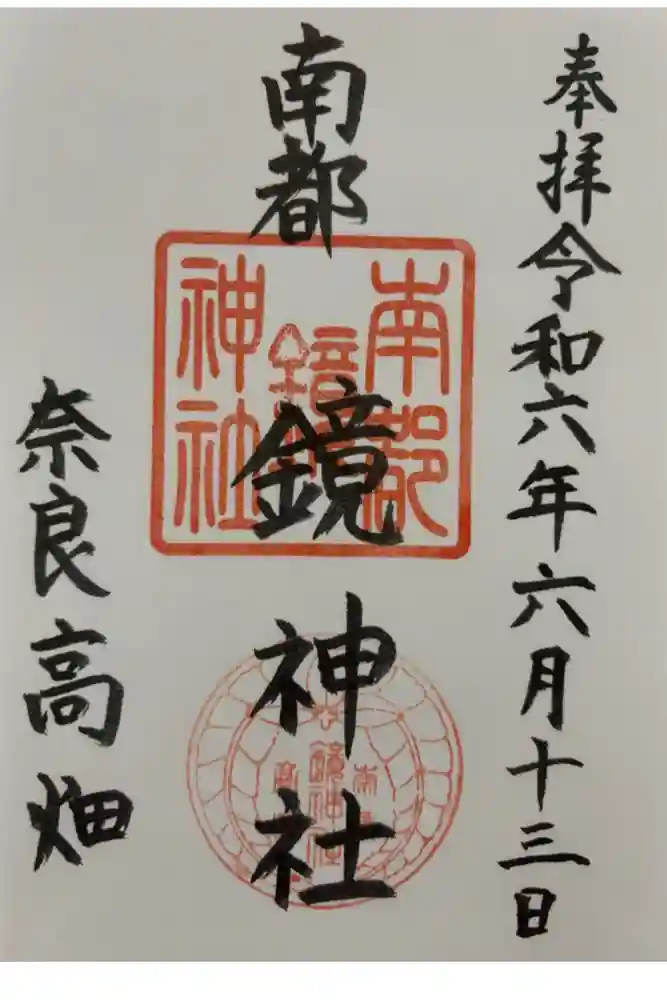 奉拝令和六年六月十三日
南都
鏡神社
南都
鏡
神社
奈良高畑
鏡神社